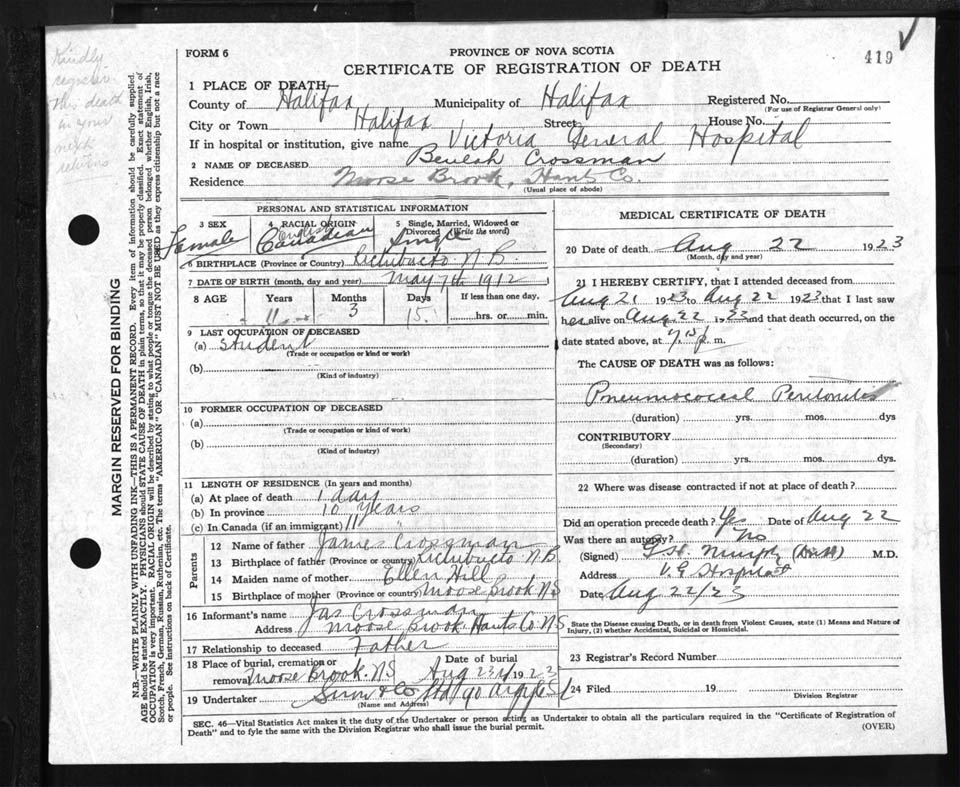 Kindly
register
this death
in your
next
returns
FORM 6
PROVINCE OF NOVA SCOTIA
419
CERTIFICATE OF REGISTRATION OF DEATH
1 PLACE OF DEATH
County of Halifax Municipality of Halifax Registered No.
(For use of Registrar General only)
City or Town Halifax Street House No.
If in hospital or institution, give name Victoria General Hospital
2 NAME OF DECEASED Beulah Crossman
Residence Moose Brook, Hants Co.
(Usual place of abode)
PERSONAL AND STATISTICAL INFORMATION
3 SEX Female
4 RACIAL ORIGIN English Canadian
5 Single, Married, Widowed or Divorced (Write the word) Single
6 BIRTHPLACE (Province or Country) Richibucto N.B.
7 DATE OF BIRTH (month, day and year) May 7th 1912
8 AGE Years Months Days If less than one day,
11 3 15 hrs. or min.
9 LAST OCCUPATION OF DECEASED
(a) Student
(Trade or occupation or kind or work)
(b)
(Kind of industry)
10 FORMER OCCUPATION OF DECEASED
(a)
(Trade or occupation or kind of work)
(b)
(Kind of industry)
11 LENGTH OF RESIDENCE (In years and months)
(a) At place of death 1 day
(b) In province 10 years
(c) In Canada (if an immigrant) 11 "
Parents
12 Name of father James Crossman
13 Birthplace of father (Province or country) Richibucto N.B.
14 Maiden name of mother Ellen Hill
15 Birthplace of mother (Province or country) Moose Brook NS
16 Informant's name Jas Crossman
Address Moose Brook Hants Co. NS
17 Relationship to deceased Father
18 Place of burial, cremation or removal Moose Brook. NS Date of burial Aug 23rd 1923
19 Undertaker Snow & Co Ltd 90 Argyle St
(Name and Address)
MEDICAL CERTIFICATE OF DEATH
20 Date of death Aug 22 1923
(Month, day and year)
21 I HEREBY CERTIFY, that I attended deceased from
Aug 21 1923 to Aug 22 1923 that I last saw
her alive on Aug. 22 1923 and that death occurred, on the
date stated above, at p. m.
The CAUSE OF DEATH was as follows:
Pneumococcal Peritonitis
(duration) yrs. mos. dys
CONTRIBUTORY
(Secondary)
(duration) yrs. mos. dys.
22 Where was disease contracted if not at place of death?
Did an operation precede death? Yes Date of Aug 22
Was there an autopsy? No
(Signed) Murphy M.D.
Address V. G Hospital
Date Aug 22/23
State the Disease causing Death, or in death from Violent Causes, state (1) Means and Nature of
Injury, (2) whether Accidental, Suicidal or Homicidal.
23 Registrar's Record Number
24 Filed 19
Division Registrar
SEC. 46—Vital Statistics Act makes it the duty of the Undertaker or person acting as Undertaker to obtain all the particulars required in the "Certificate of Registration of
Death" and to fyle the same with the Division Registrar who shall issue the burial permit.
(OVER)
MARGIN RESERVED FOR BINDING
N.B.—WRITE PLAINLY WITH UNFADING INK—THIS IS A PERMANENT RECORD. Every item of information should be carefully supplied.
AGE should be stated EXACTLY. PHYSICIANS should STATE CAUSE OF DEATH in plain terms, so that it may be properly classified. Exact statement of
OCCUPATION is very important. RACIAL ORIGIN will be described by stating to what people or tongue the deceased person belonged whether English, Irish,
Scotch, French, German, Russian, Ruthenian, etc. The terms "AMERICAN" OR "CANADIAN" MUST NOT BE USED as they express citizenship but not a race
or people. See instructions on back of Certificate.